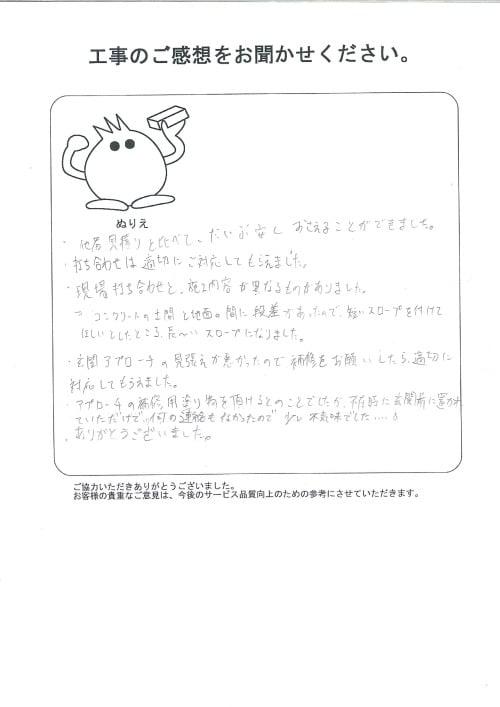 工事のご感想をお聞かせください。
ぬりえ
・他店見積りと比べて、だいぶ安くおさえることができました。
・打ち合わせは適切にご対応してもらえました。
・現場打ち合わせと、施工内容が異なるものがありました。
コンクリートの土間と地面の間に段差があったので、短いスロープを付けて
ほしいとしたところ、長〜いスロープになりました。
・玄関アプローチの見張えが悪かったので補修をお願いしたら、適切に
対応してもらえました。
・アプローチの補修用塗り物を頂けるとのことでしたが、不在時に玄関前に置かれ
ていただけで、何の連絡もなかったので少し不気味でした....
ありがとうございました。
ご協力いただきありがとうございました。
お客様の貴重なご意見は、今後のサービス品質向上のための参考にさせていただきます。